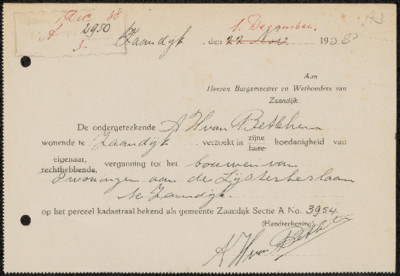 A 2950
3.
1. December.
A3
Zaandijk, den 22 Nov 1938
Aan
Heeren Burgemeester en Wethouders van
Zaandijk.
De ondergeteekende A H van Betlehem
wonende te Zaandijk verzoekt in zijne hare hoedanigheid van
eigenaar, rechthebbende, vergunning tot het bouwen van
2 woningen aan de Lijsterbeslaan
te Zaandijk.
op het perceel kadastraal bekend als gemeente Zaandijk Sectie A No. 3954.
(Handteekening)
A H van Betleh